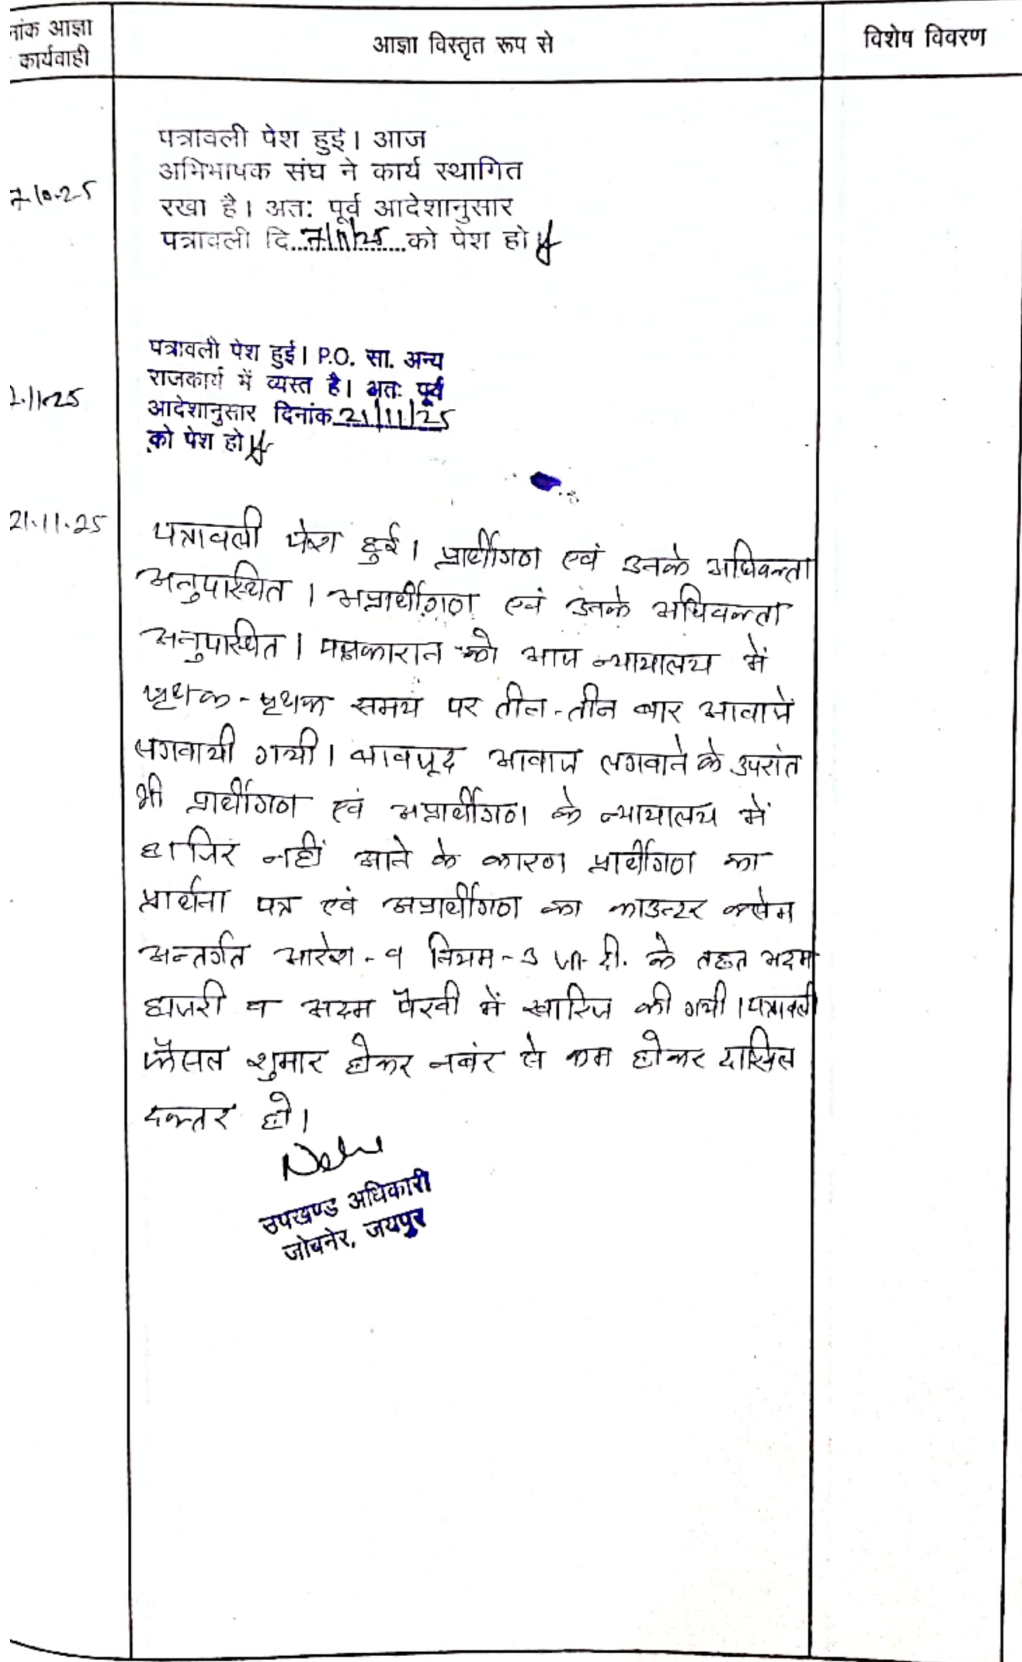 नांक आज्ञा
कार्यवाही
आज्ञा विस्तृत रूप से
विशेष विवरण
7-10-25
पत्रावली पेश हुई। आज
अभिभाषक संघ ने कार्य स्थागित
रखा है। अतः पूर्व आदेशानुसार
पत्रावली दि...7/11/25...को पेश हो
7.11.25
पत्रावली पेश हुई। P.O. सा. अन्य
राजकार्य में व्यस्त है। अतः पूर्व
आदेशानुसार दिनांक 21/11/25
को पेश हो
21.11.25
पत्रावली पेश हुई। प्रार्थीगण एवं उनके अधिवक्ता
अनुपास्थित। अप्रार्थीगण एवं उनके अधिवक्ता
अनुपास्थित। पक्षकारान को आज न्यायालय में
पृथक-पृथक समय पर तीन-तीन बार आवाजें
लगवायी गयी। बावजूद आवाज लगवाने के उपरांत
भी प्रार्थीगण एवं अप्रार्थीगण के न्यायालय में
हाजिर नहीं आने के कारण प्रार्थीगण का
प्रार्थना पत्र एवं अप्रार्थीगण का काउन्टर क्लेम
अन्तर्गत आदेश-9 नियम-3 जा.दी. के तहत अदम
हाजरी व अदम पैरवी में खारिज की गयी। पत्रावली
फैसल शुमार होकर नबंर से कम होकर दाखिल
दफ्तर हो।
उपखण्ड अधिकारी
जोबनेर, जयपुर